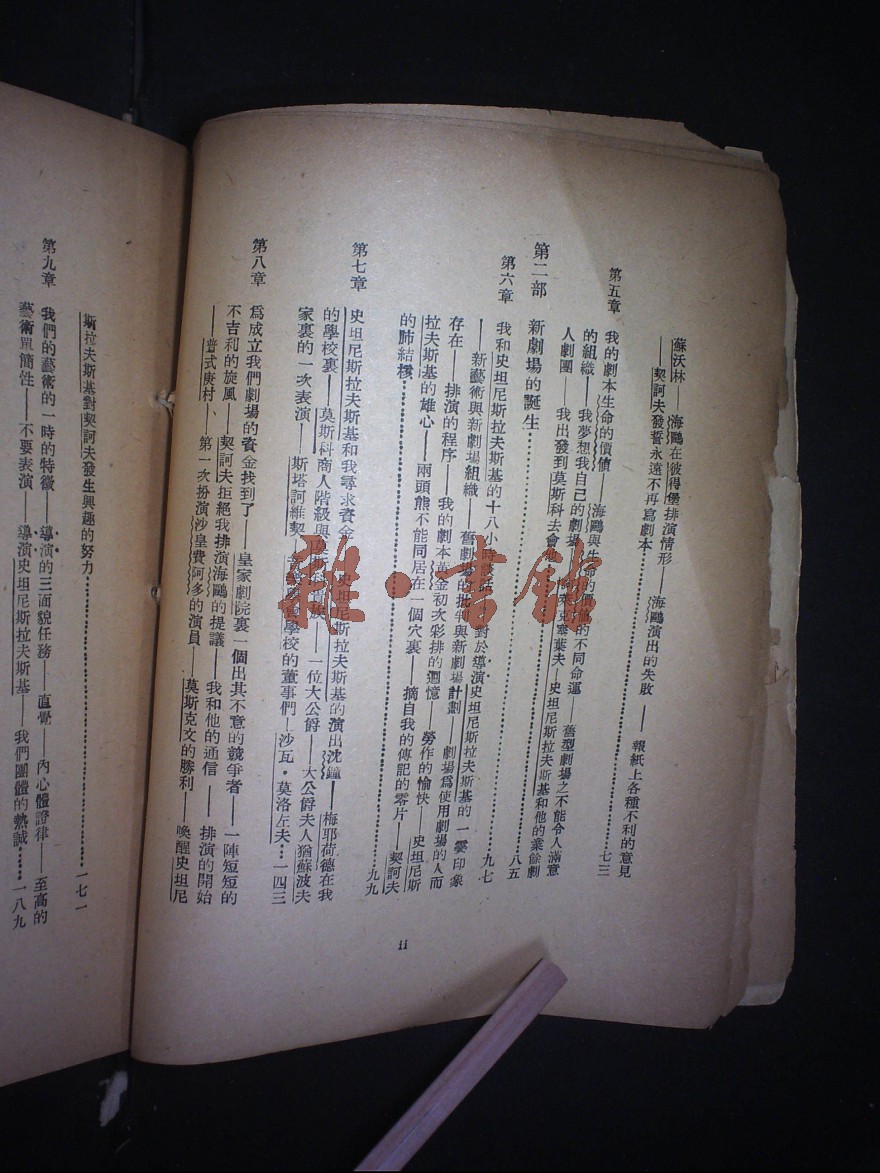 蘇沃林——海鷗在彼得堡排演情形——海鷗演出的失敗——報紙上各種不利的意見
——契訶夫發誓永遠不再寫劇本
七三
第五章 我的劇本生命的價値——海鷗與生命的價値的不同命運——舊型劇場之不能令人滿意
的組織——我夢想我自己的劇場——阿萊克塞葉夫—史坦尼斯拉夫斯基和他的業餘劇
人劇團——我出發到莫斯科去會他
八五
第二部 新劇場的誕生
九七
第六章 我和史坦尼斯拉夫斯基的十八小時談話——對於導演史坦尼斯拉夫斯基的一霎印象
——新藝術與新劇場組織——舊劇場的批判與新劇場計劃——劇場爲使用劇場的人而
存在——排演的程序——我的劇本黃金初次彩排的迴憶——勞作的愉快——史坦尼斯
拉夫斯基的雄心——兩頭熊不能同居在一個穴裏——摘自我的傳記的零片——契訶夫
的肺結核
九九
第七章 史坦尼斯拉夫斯基和我尋求資金——史坦尼斯拉夫斯基的演出沈鐘——梅耶荷德在我
的學校裏——莫斯科商人階級與莫斯科貴族——一位大公爵——大公爵夫人猶蘇波夫
家裏的一次表演——斯塔訶維契——音樂學校的董事們—沙瓦·莫洛左夫…一四三
第八章 爲成立我們劇場的資金找到了——皇家劇院裏一個出其不意的競爭者——一陣短短的
不吉利的旋風——契訶夫拒絕我排演海鷗的提議——我和他的通信——排演的開始
——普式庚村、——第一次扮演沙皇費阿多的演員——莫斯克文的勝利——喚醒史坦尼
ii
斯拉夫斯基對契訶夫發生興趣的努力
一七一
第九章 我們的藝術的一時的特徵——導演的三面貌任務——直覺——內心體證律——至高的
藝術單簡性——不要表演——導演史坦尼斯拉夫斯基——我們團體的熱誠……一八九